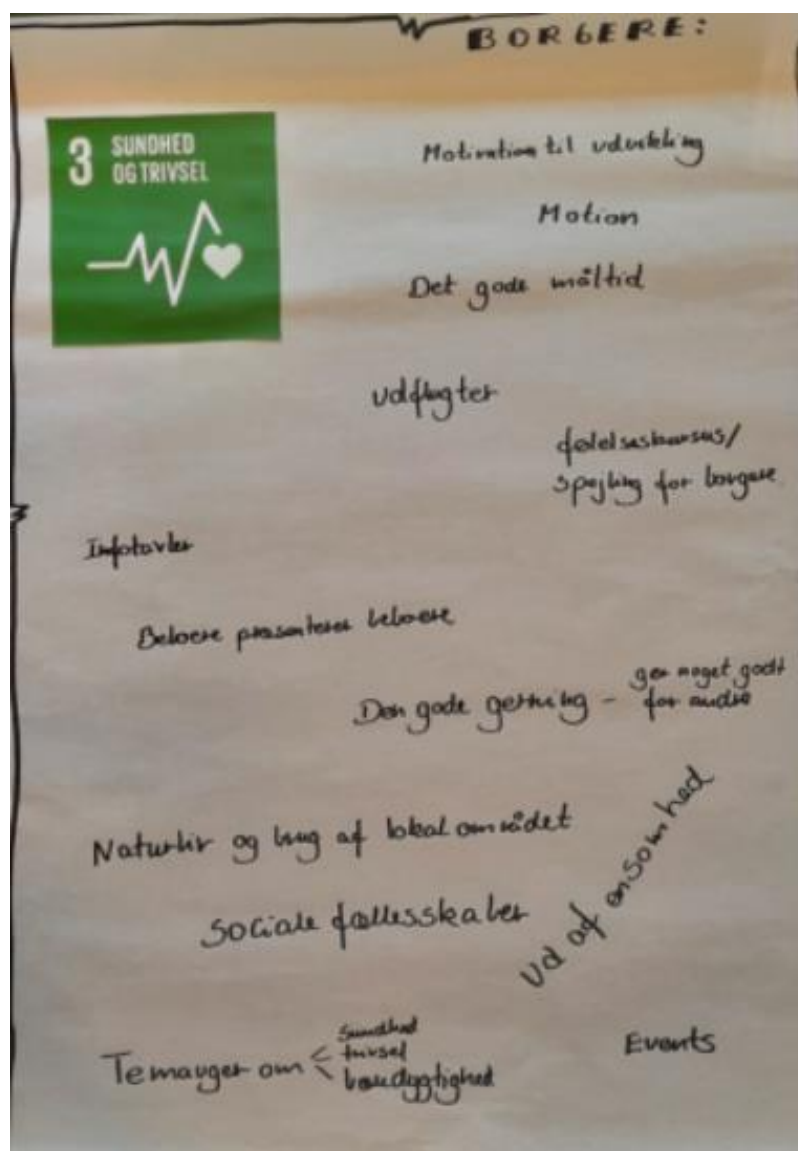 BORGERE:
3 SUNDHED
OG TRIVSEL
Motivation til udvikling
Motion
Det gode måltid
Udflugter
følelseskursus/
spejling for borgere
Infotavler
Beboere præsenterer beboere
Den gode gerning - gør noget godt
for andre
Naturliv og brug af lokalområdet
Sociale fællesskaber
Ud af ensomhed
Temauger om < sundhed
trivsel
bæredygtighed
Events